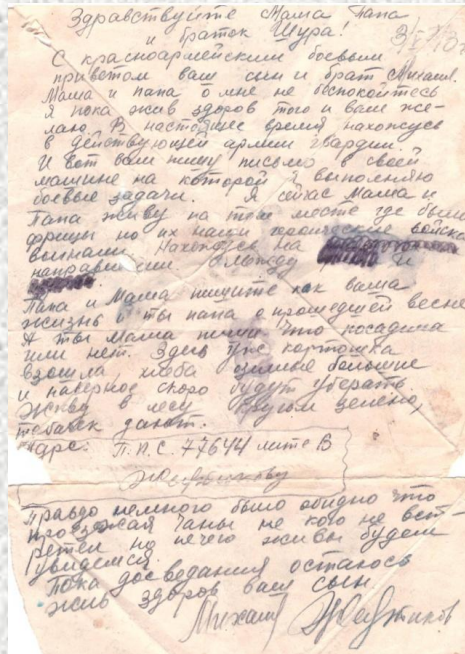 Здравствуйте Мама Папа
и браток Шура!
С красноармейским боевым
приветом ваш сын и брат Михаил.
Мама и папа о мне не беспокойтесь
я пока жив здоров того и вам же-
лаю. В настоящее время нахожусь
в действующей армии гвардии.
И вот вам пишу письмо в своей
машине на которой я выполняю
боевые задачи. Я сейчас Мама и
Папа живу на том месте где были
фрицы но их наши героические войска
выгнали. Нахожусь на
направлении. Между и
Папа и Мама пишите как ваша
жизнь и ты папа о прошедшей весне
А ты Мама пиши что посадила
или нет. Здесь уже картошка
взошла хлеба озимые большие
и наверное скоро будут уберать.
Живу в лесу кругом зелено,
табачек дают.
Адрес: П.П.С. 77644 лите В
Правдо немного было обидно что
проезжая Чаны не кого не вст-
ретел но нечего живы будем
увидемся.
Пока досведания остаюсь
жив здоров ваш сын
Михаил